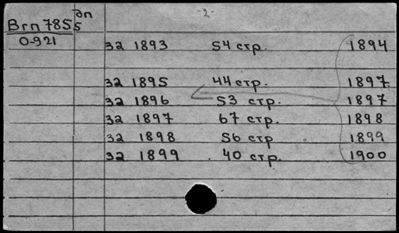 -2-
Вгп 785 дп/5
0-921
32 1893 54 стр. 1894
32 1895 44 стр. 1897
32 1896 53 стр. 1897
32 1897 67 стр 1898
32 1898 56 стр 1899
32 1899 40 стр. 1900